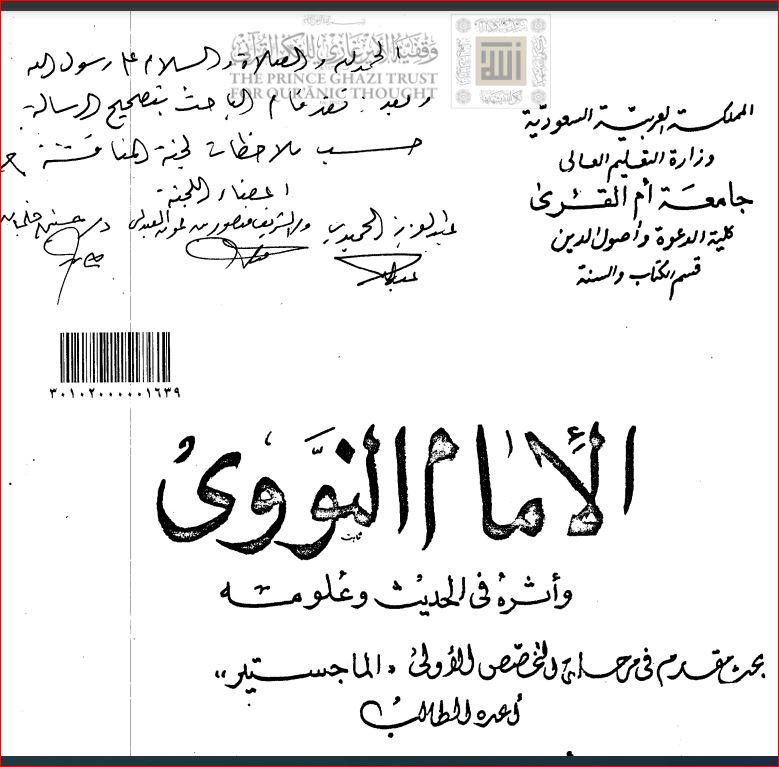 وقفية الأمير غازي للفكر القرآني
THE PRINCE GHAZI TRUST
FOR QUR'ĀNIC THOUGHT
الحمد لله والصلاة والسلام على رسول الله
وبعد: فقد قام الباحث بتصحيح الرسالة
حسب ملاحظات لجنة المناقشة
أعضاء اللجنة
عبد العزيز الحميدي
المملكة العربيّة السعوديّة
وزارة التعليم العالى
جامعَة أم القــرى
كلية الدعوة وأصول الدين
قسم الكتاب والسنة
٣٠١٠٢٠٠٠٠٠١٦٣٩
الإمام النَّووى
وأثرهُ فى الحديث وعُلومـه
بحث مقدم فى مرحلة التخصّص الأولىٰ «الماجستير»
أعده الطالب